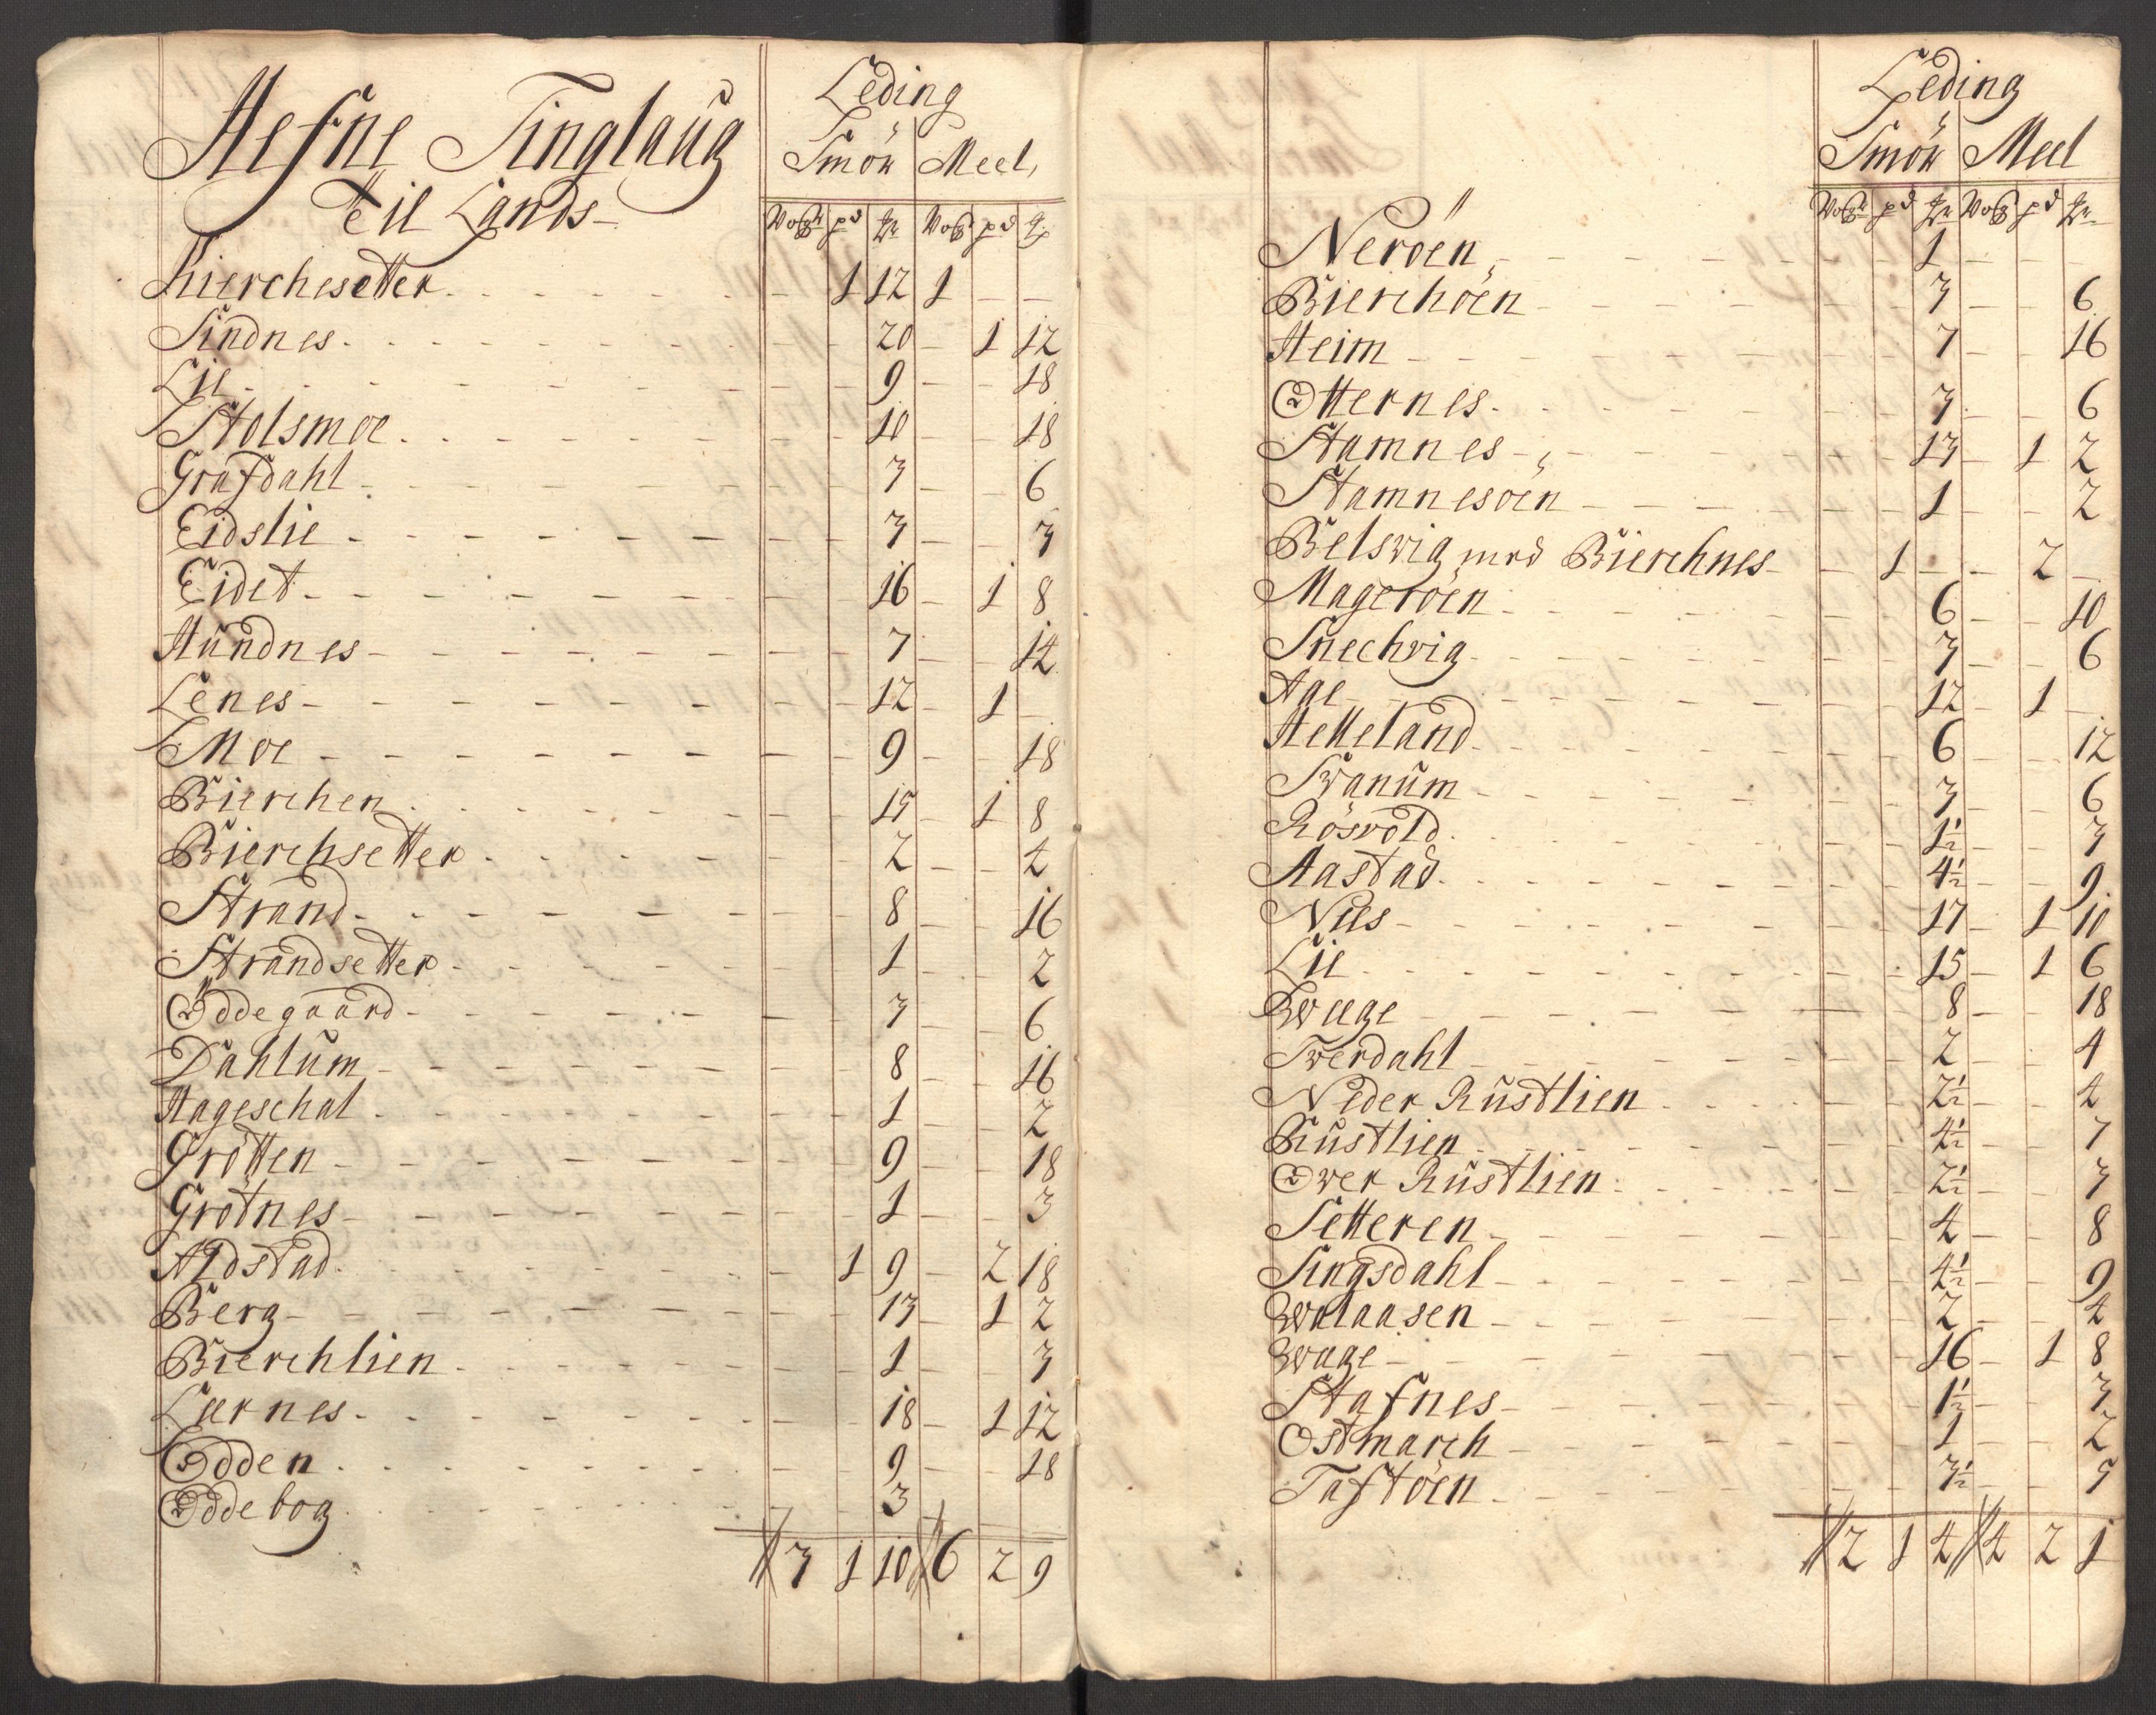 Hefne Tinglaug
til Lands
Leding
Smör Meel
Wog pd
Kierchesetter 1 12 1
Sindnes 20 1 12
Lie 9 18
Stolsmoe 10 18
Grafdahl 3 6
Eidslie 3 3
Eidet 16 1 8
Hundnes 7 14
Lenes 12 1
Moe 9 18
Bierchen 15 1 8
Bierchsetter 2 4
Strand 8 16
Strandsetter 1 2
Öddegaard 3 6
Dahlum 8 16
Hageschal 1 2
Grötten 9 18
Grötnes 1 3
Aldstad 1 9 2 18
Berg 13 1 2
Bierchlien 1 3
Lurnes 18 1 12
Odden 9 18
Oddebog 3
3 1 10 6 2 9
Leding
Smör Meel
Neröen 1
Bierchöen 3 6
Heim 7 16
Otternes 3 6
Stamnes 13 1 2
Stamnesöen 1 2
Belsvig med Bierchnes 1 2
Mageröen 6 10
Snechvig 3 6
Aae 12 1
Helleland 6 12
Svanum 3 6
Rösvold 1½ 3
Aastad 4½ 9
Nees 17 1 10
Lie 15 1 6
Waage 8 18
Tverdahl 2 4
Neder Rustlien 2½ 4
Rustlien 4½ 7
Over Rustlien 2½ 3
Setteren 4 8
Singsdahl 4½ 9
Walaasen 2 4
Waage 16 1 8
Stafnes 1½ 3
Ostmarch 1 2
Taftöen 3½ 5
2 1 4 4 2 1